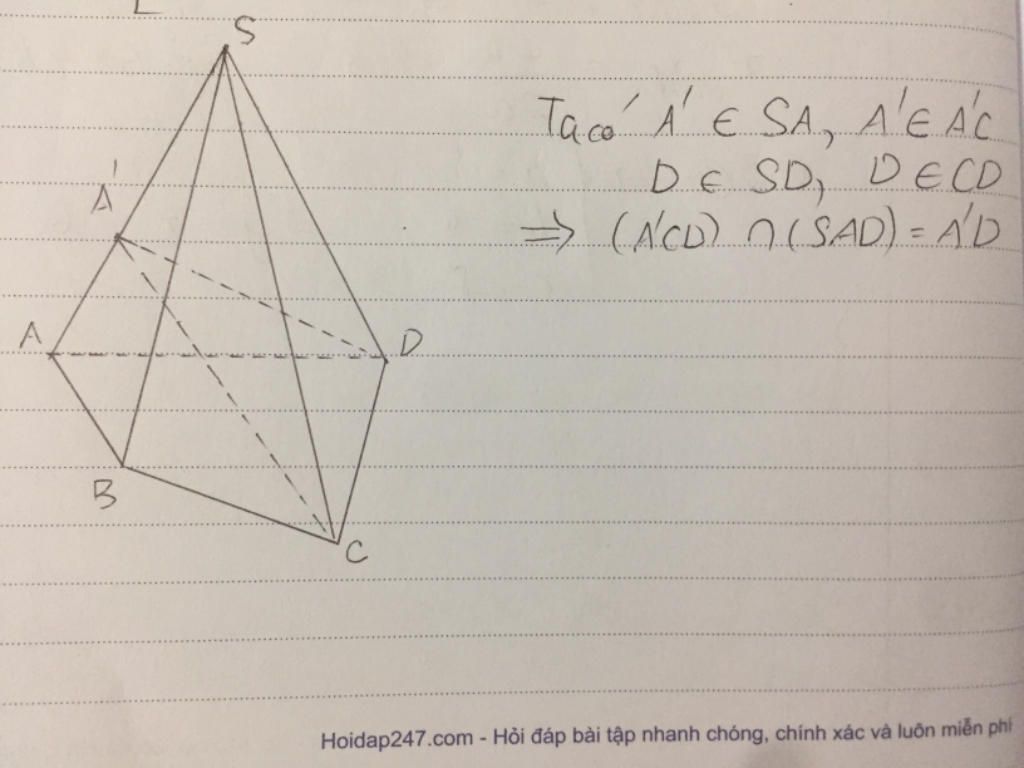 S
A'
A
D
B
C
Ta có A' ∈ SA, A' ∈ A'C
D ∈ SD, D ∈ CD
⇒ (A'CD) ∩ (SAD) = A'D
Hoidap247.com - Hỏi đáp bài tập nhanh chóng, chính xác và luôn miễn phí